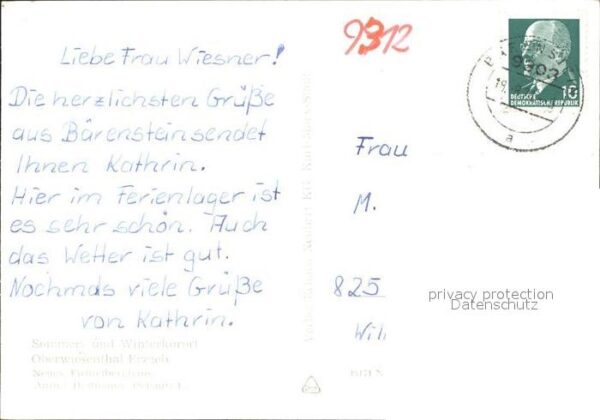 Liebe Frau Wiesner!
Die herzlichsten Grüße
aus Bärenstein sendet
Ihnen Kathrin.
Hier im Ferienlager ist
es sehr schön. Auch
das Wetter ist gut.
Nochmals viele Grüße
von Kathrin.
Sommer- und Winterkurort
Oberwiesenthal Erzgeb.
9312
9303
10
DEUTSCHE
DEMOKRATISCHE REPUBLIK
a
Frau
M.
825
privacy protection
Datenschutz